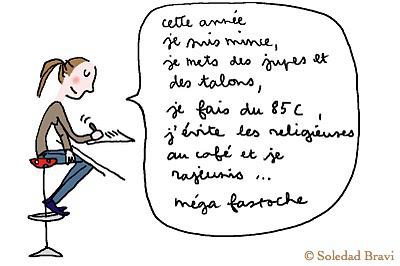 cette année
je suis mince,
je mets des jupes et
des talons,
je fais du 85 C,
j'évite les religieuses
au café et je
rajeunis ...
méga fastoche
© Soledad Bravi